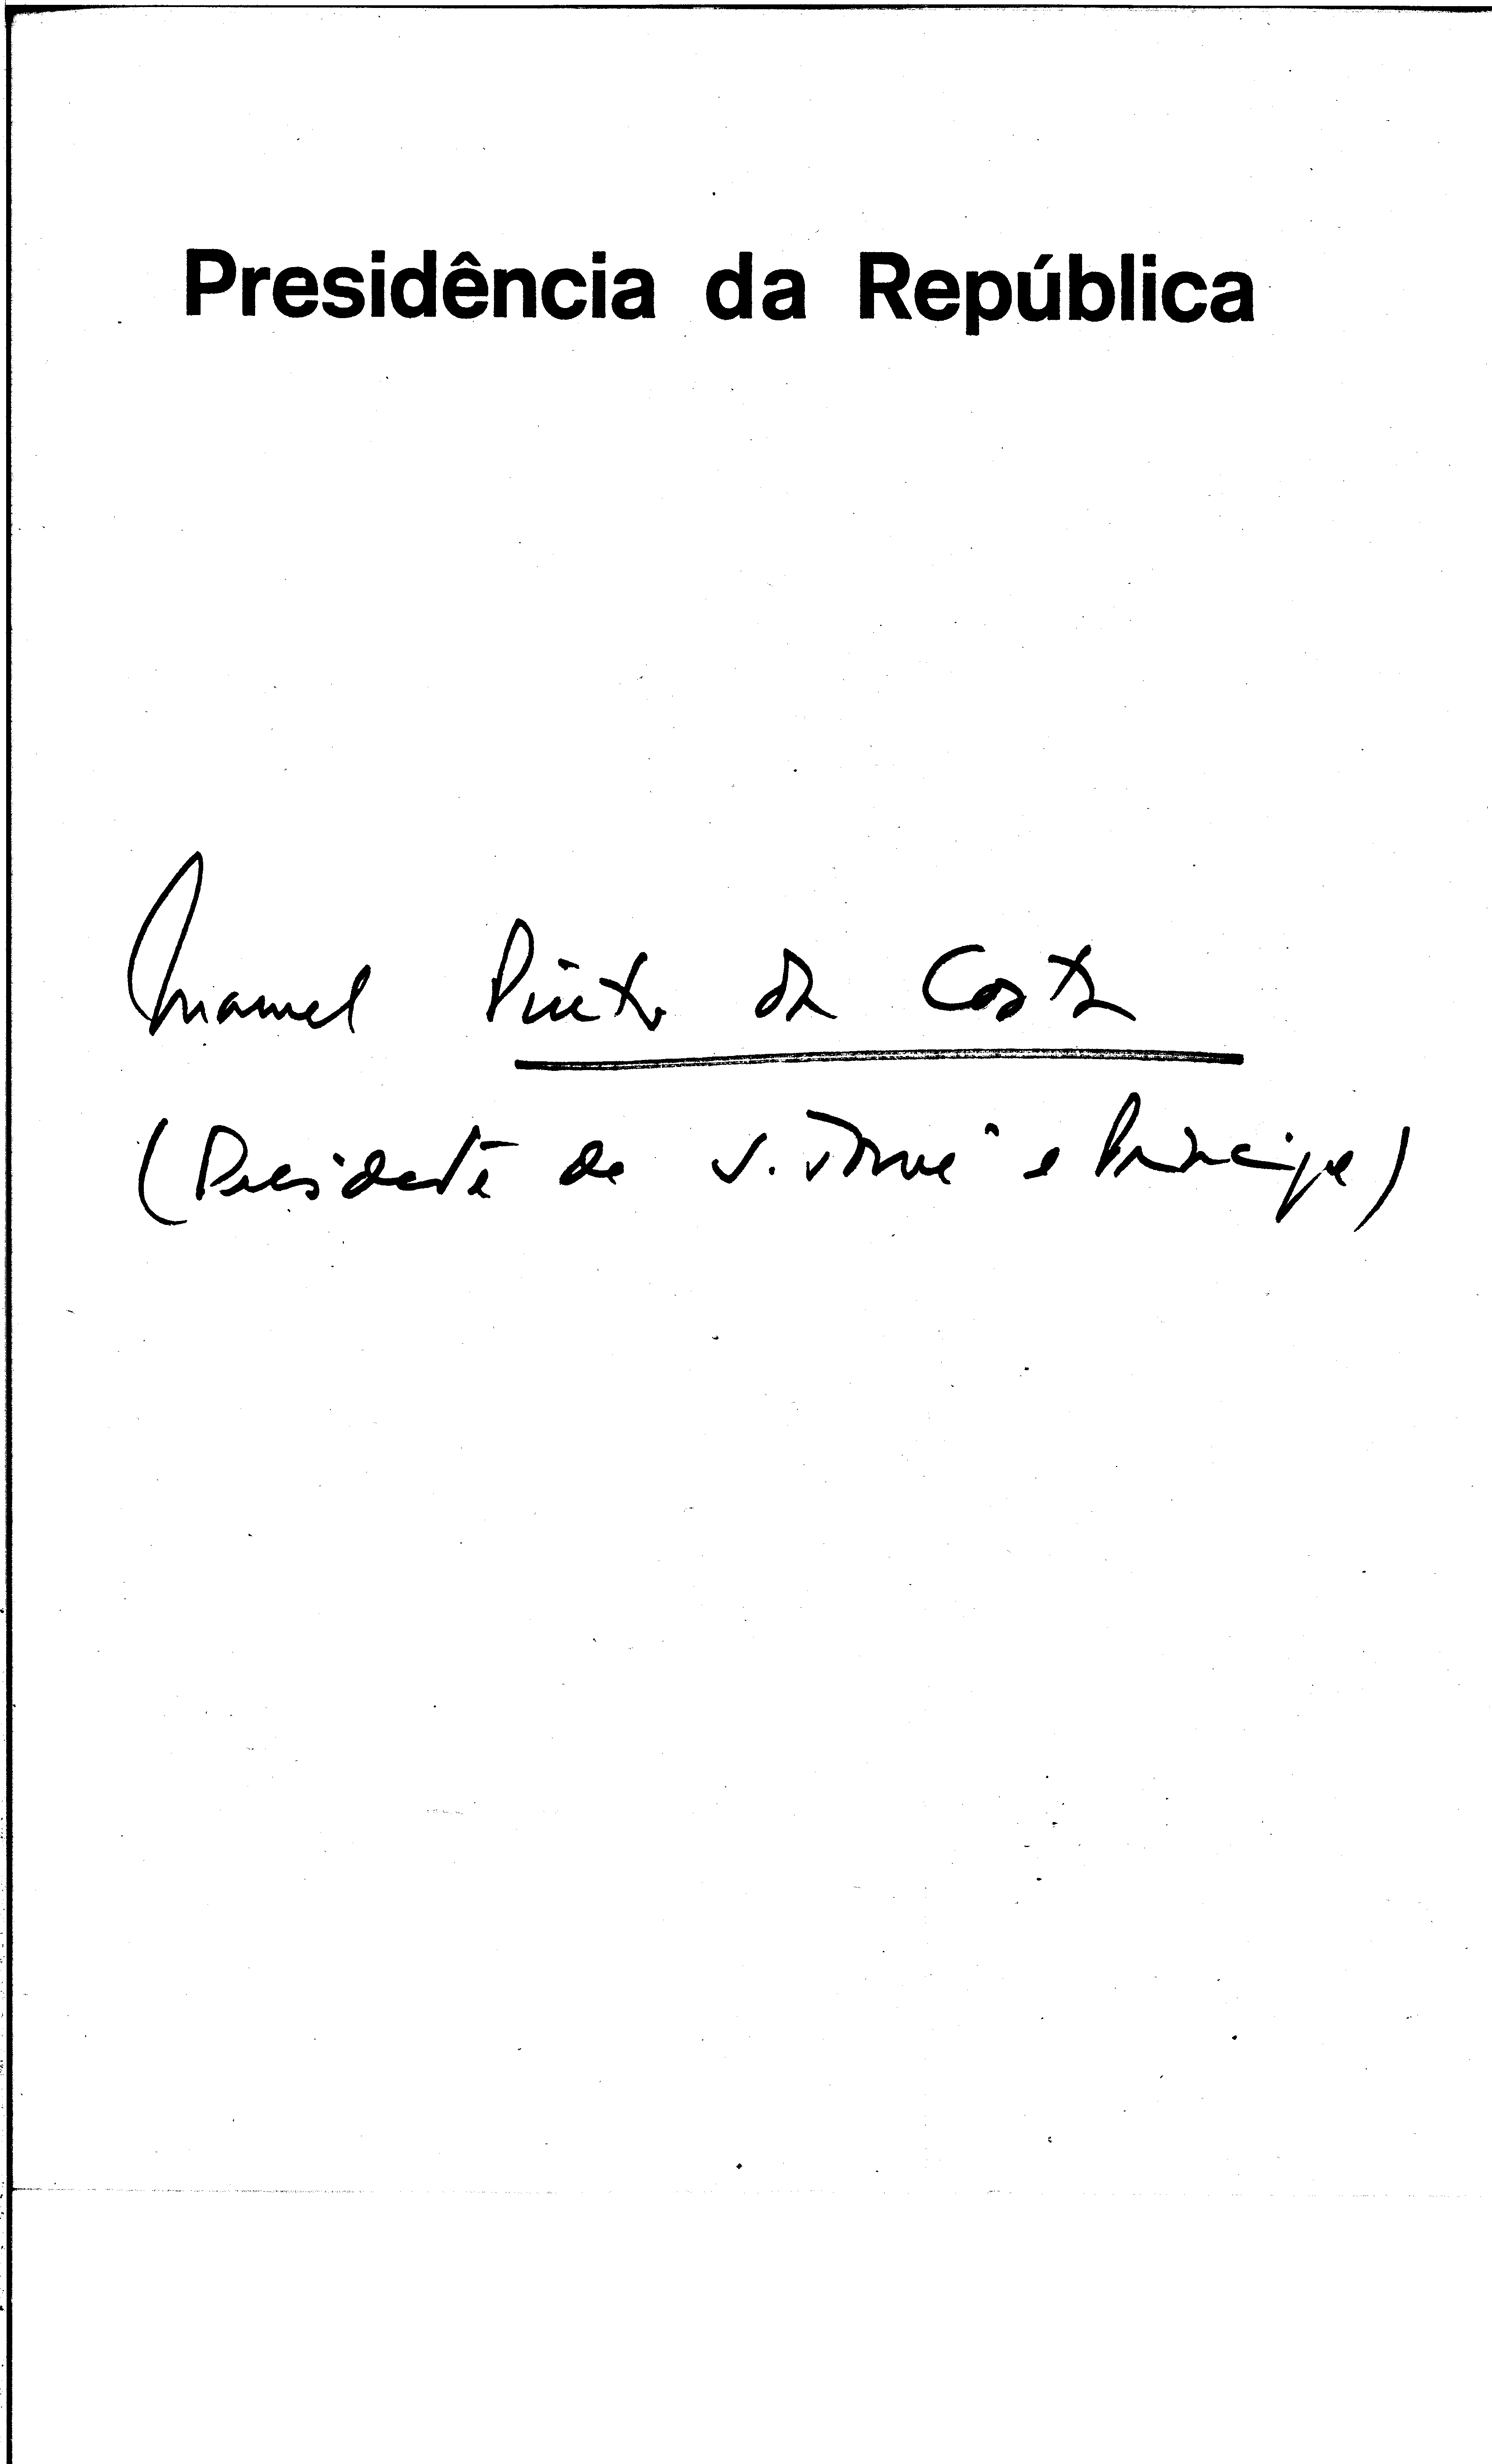 Presidência da República
Manuel Pinto da Costa
(Presidente de S. Tomé e Principe)